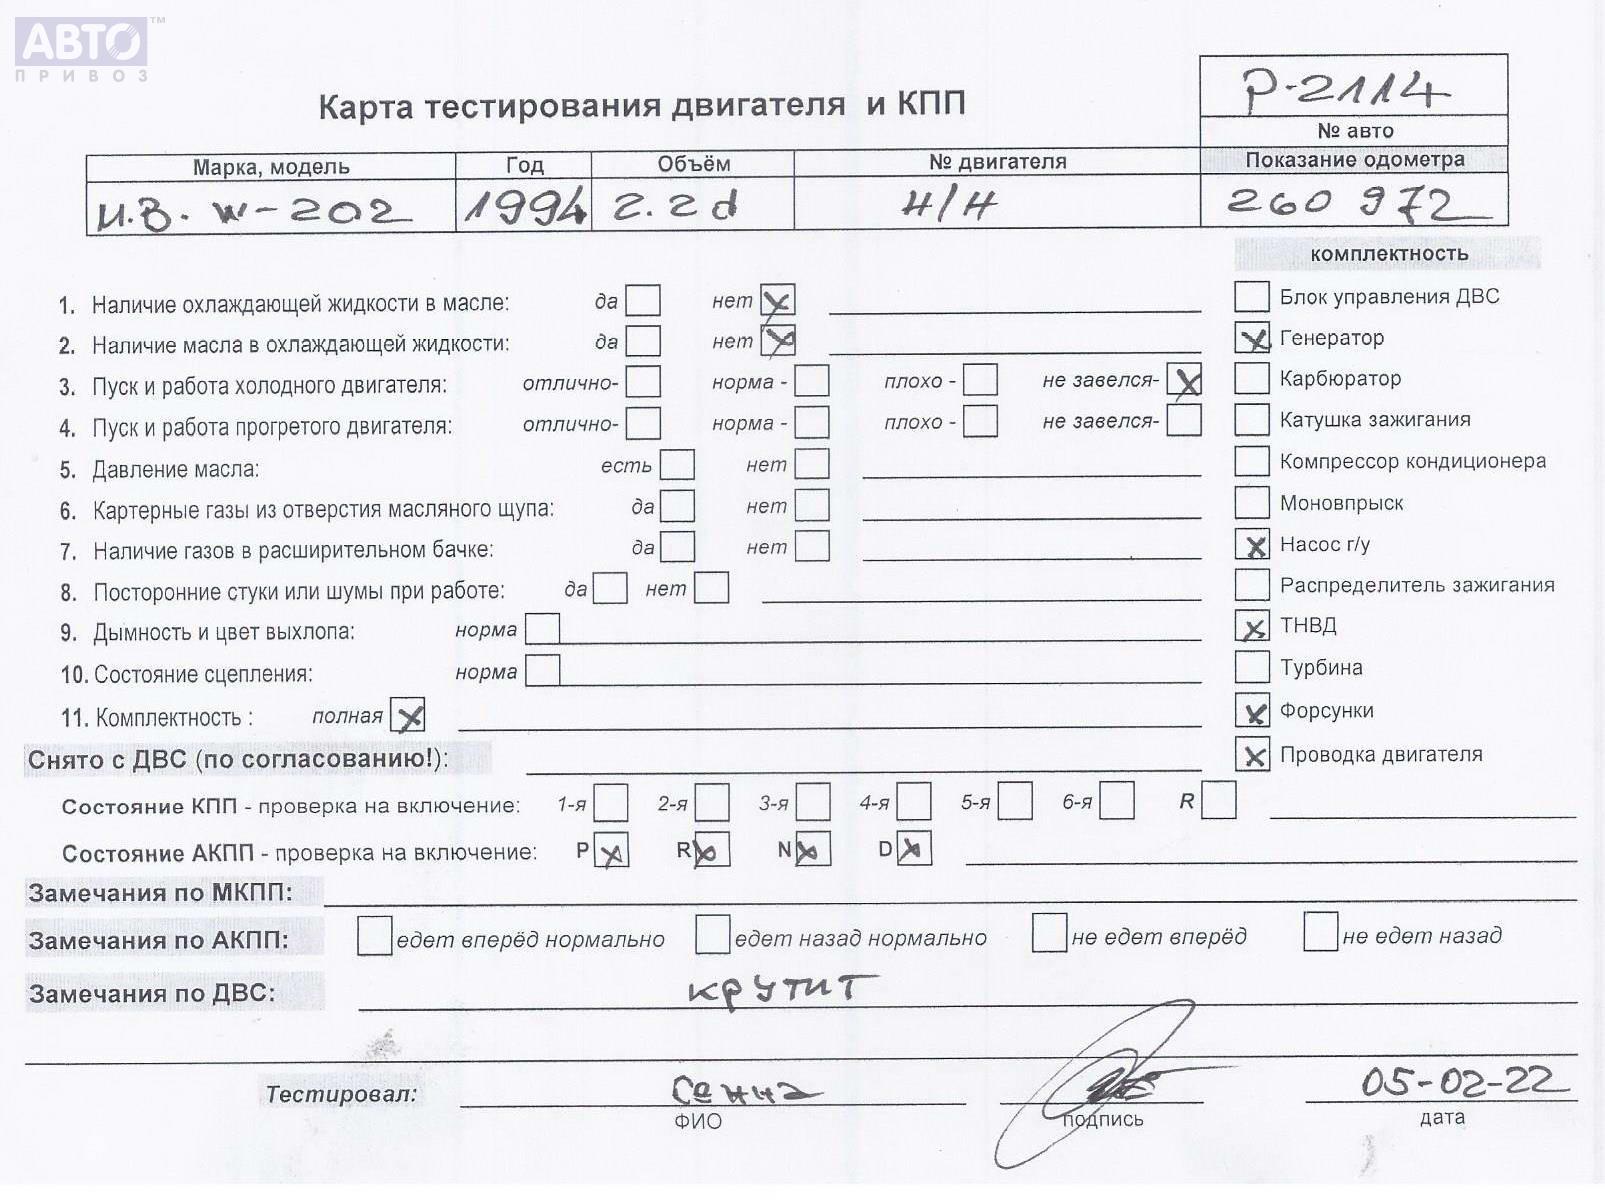 АВТО™
ПРИВОЗ
Карта тестирования двигателя и КПП
Р-2114
№ авто
Марка, модель Год Объём № двигателя Показание одометра
М.В. W-202 1994 2.2d Н/Н 260 972
комплектность
1. Наличие охлаждающей жидкости в масле: да нет
Блок управления ДВС
2. Наличие масла в охлаждающей жидкости: да нет
Генератор
3. Пуск и работа холодного двигателя: отлично- норма - плохо - не завелся-
Карбюратор
4. Пуск и работа прогретого двигателя: отлично- норма - плохо - не завелся-
Катушка зажигания
5. Давление масла: есть нет
Компрессор кондиционера
6. Картерные газы из отверстия масляного щупа: да нет
Моновпрыск
7. Наличие газов в расширительном бачке: да нет
Насос г/у
8. Посторонние стуки или шумы при работе: да нет
Распределитель зажигания
9. Дымность и цвет выхлопа: норма
ТНВД
10. Состояние сцепления: норма
Турбина
11. Комплектность : полная
Форсунки
Снято с ДВС (по согласованию!):
Проводка двигателя
Состояние КПП - проверка на включение: 1-я 2-я 3-я 4-я 5-я 6-я R
Состояние АКПП - проверка на включение: P R N D
Замечания по МКПП:
Замечания по АКПП: едет вперёд нормально едет назад нормально не едет вперёд не едет назад
Замечания по ДВС: крутит
Тестировал: 05-02-22
ФИО подпись дата